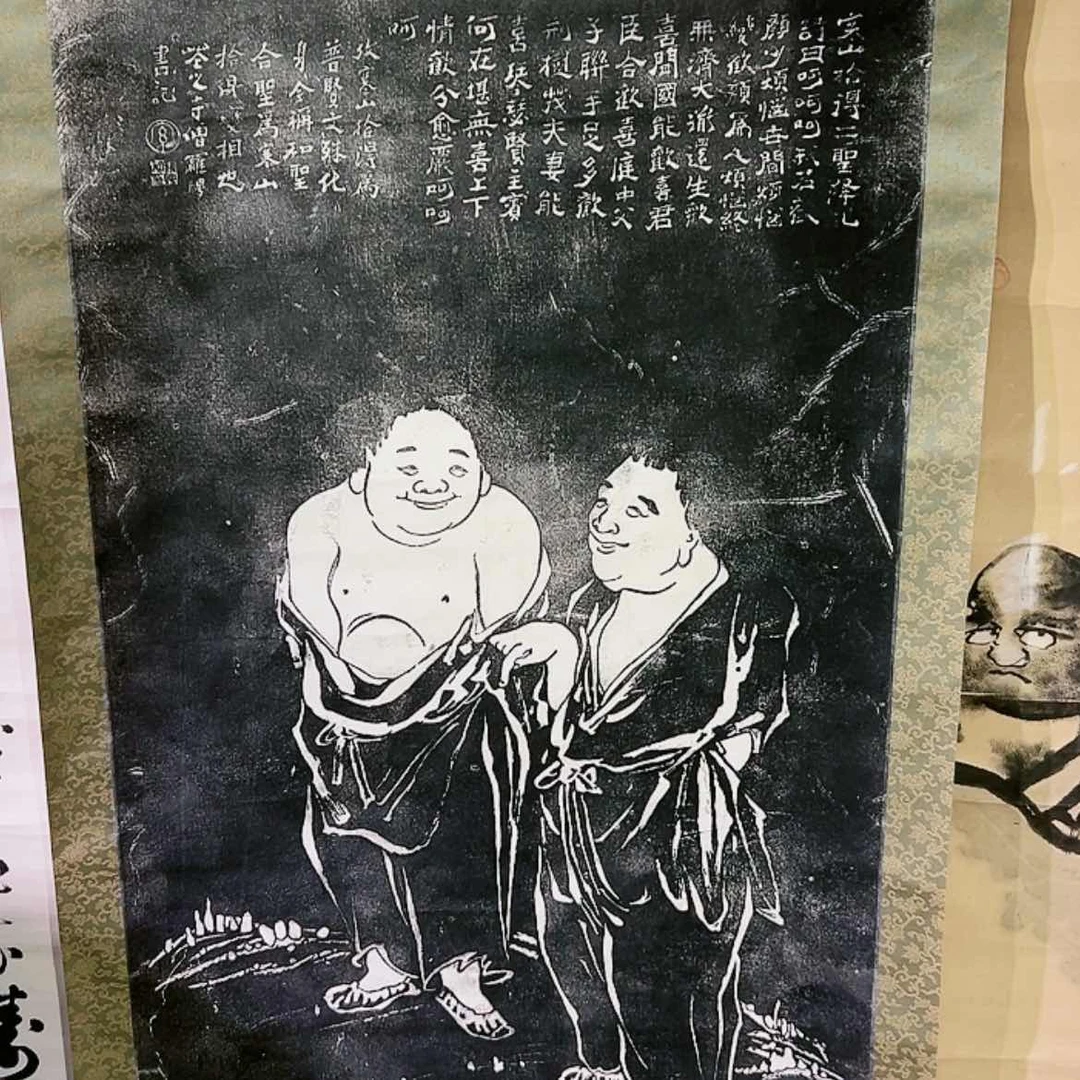 寒山拾得二聖降乩
詩曰呵呵呵我若歡
顏少煩惱世間煩惱
變歡顏為人煩惱終
無濟大道還生歡
喜間國能歡喜君
臣合歡喜庭中父
子聯手足多歡
荊樹茂夫妻能
喜琴瑟賢主賓
何在堪無喜上下
情歡分愈嚴呵呵
呵
考寒山拾得為
普賢文殊化
身今稱和聖
合聖為寒山
拾得變相也
花之寺僧羅聘
書記
壽